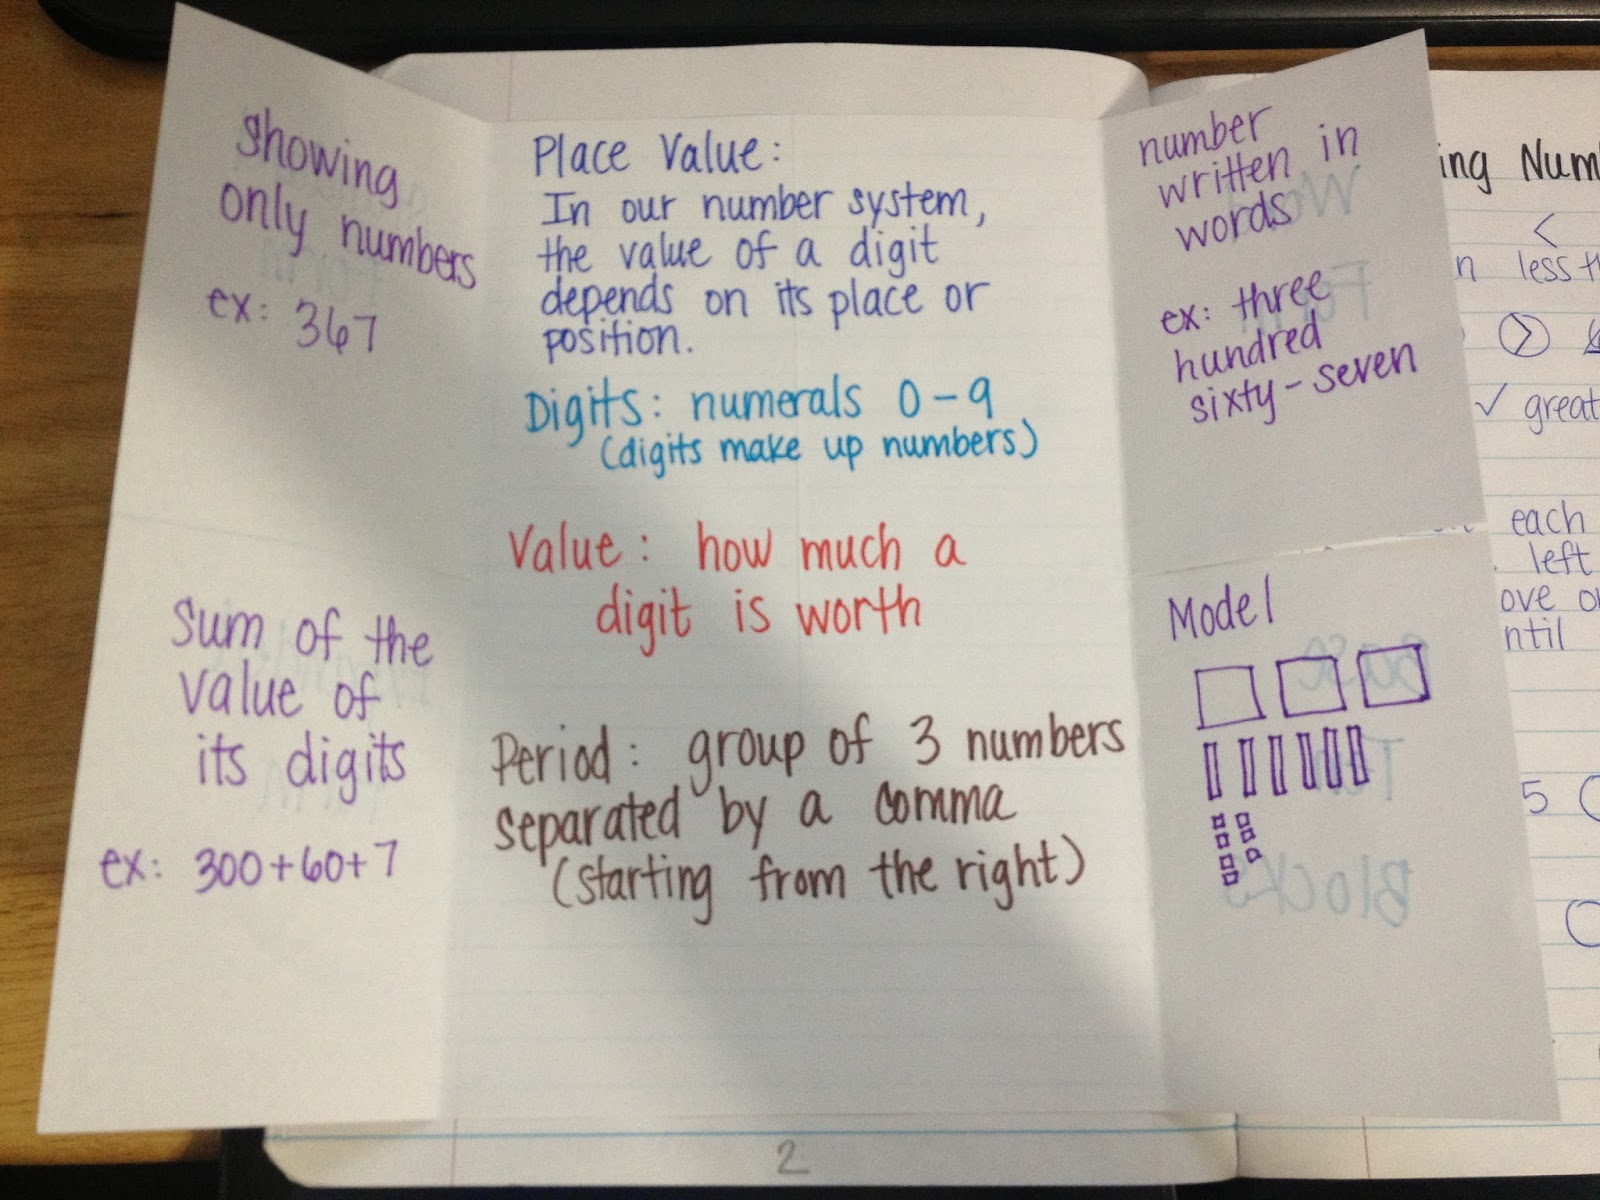 showing
only numbers
ex: 367
Sum of the
value of
its digits
ex: 300+60+7
Place Value:
In our number system,
the value of a digit
depends on its place or
position.
Digits: numerals 0-9
(digits make up numbers)
Value: how much a
digit is worth
Period: group of 3 numbers
separated by a comma
(starting from the right)
2
number
written in
words
ex: three
hundred
sixty-seven
Model
Base
Ten
Blocks
ing Num
<
n less th
>
✓ great
each
left
ove o
ntil
5